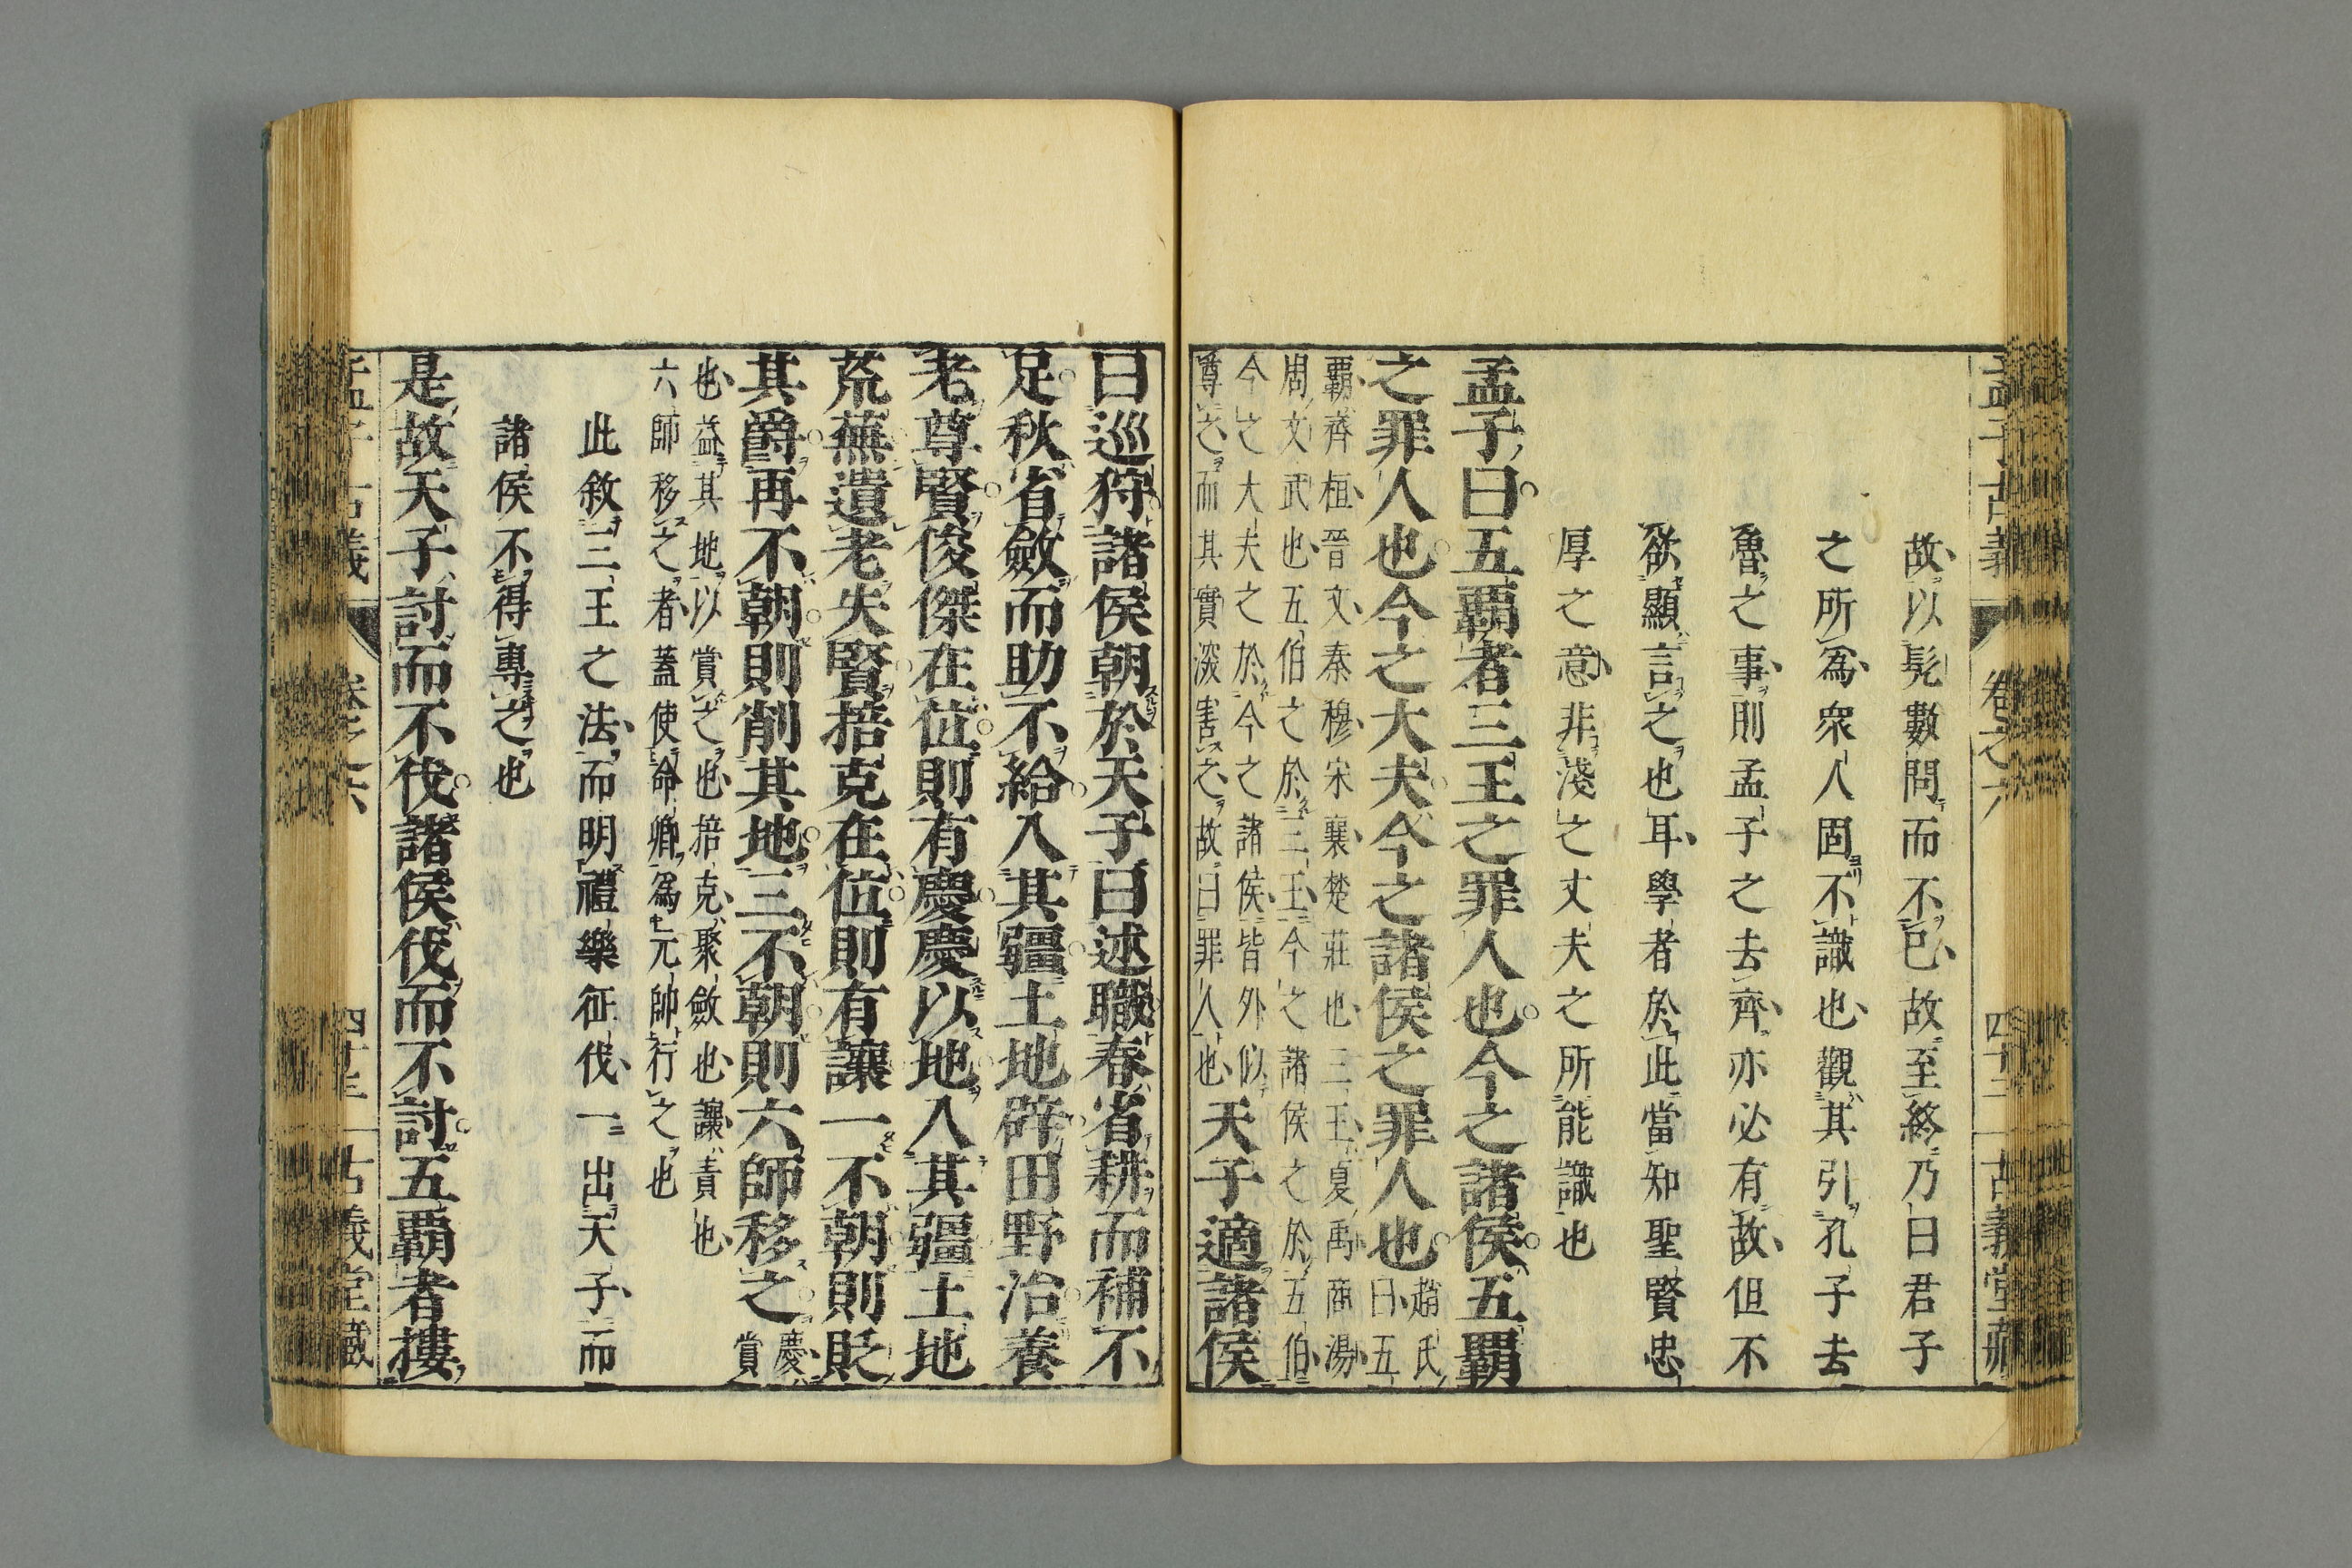 孟子古義 卷之六 四十二 古義堂藏
故以髡數問而不已故至終乃曰君子
之所爲衆人固不識也觀其引孔子去
魯之事則孟子之去齊亦必有故但不
欲顯言之也耳學者於此當知聖賢忠
厚之意非淺之丈夫之所能識也
孟子曰五覇者三王之罪人也今之諸侯五覇
之罪人也今之大夫今之諸侯之罪人也
趙氏
曰五
覇齊桓晉文秦穆宋襄楚莊也三王夏禹商湯
周文武也五伯之於三王今之諸侯之於五伯
今之大夫之於今之諸侯皆外似
尊之而其實深害之故曰罪人也
天子適諸侯
曰巡狩諸侯朝於天子曰述職春省耕而補不
足秋省斂而助不給入其疆土地辟田野治養
老尊賢俊傑在位則有慶慶以地入其疆土地
荒蕪遺老失賢掊克在位則有讓一不朝則貶
其爵再不朝則削其地三不朝則六師移之
慶
賞
也益其地以賞之也掊克聚斂也讓責也
六師移之者蓋使命卿爲元帥行之也
此敘三王之法而明禮樂征伐一出天子而
諸侯不得專之也
是故天子討而不伐諸侯伐而不討五覇者摟
孟子古義 卷之六 四十三 古義堂藏